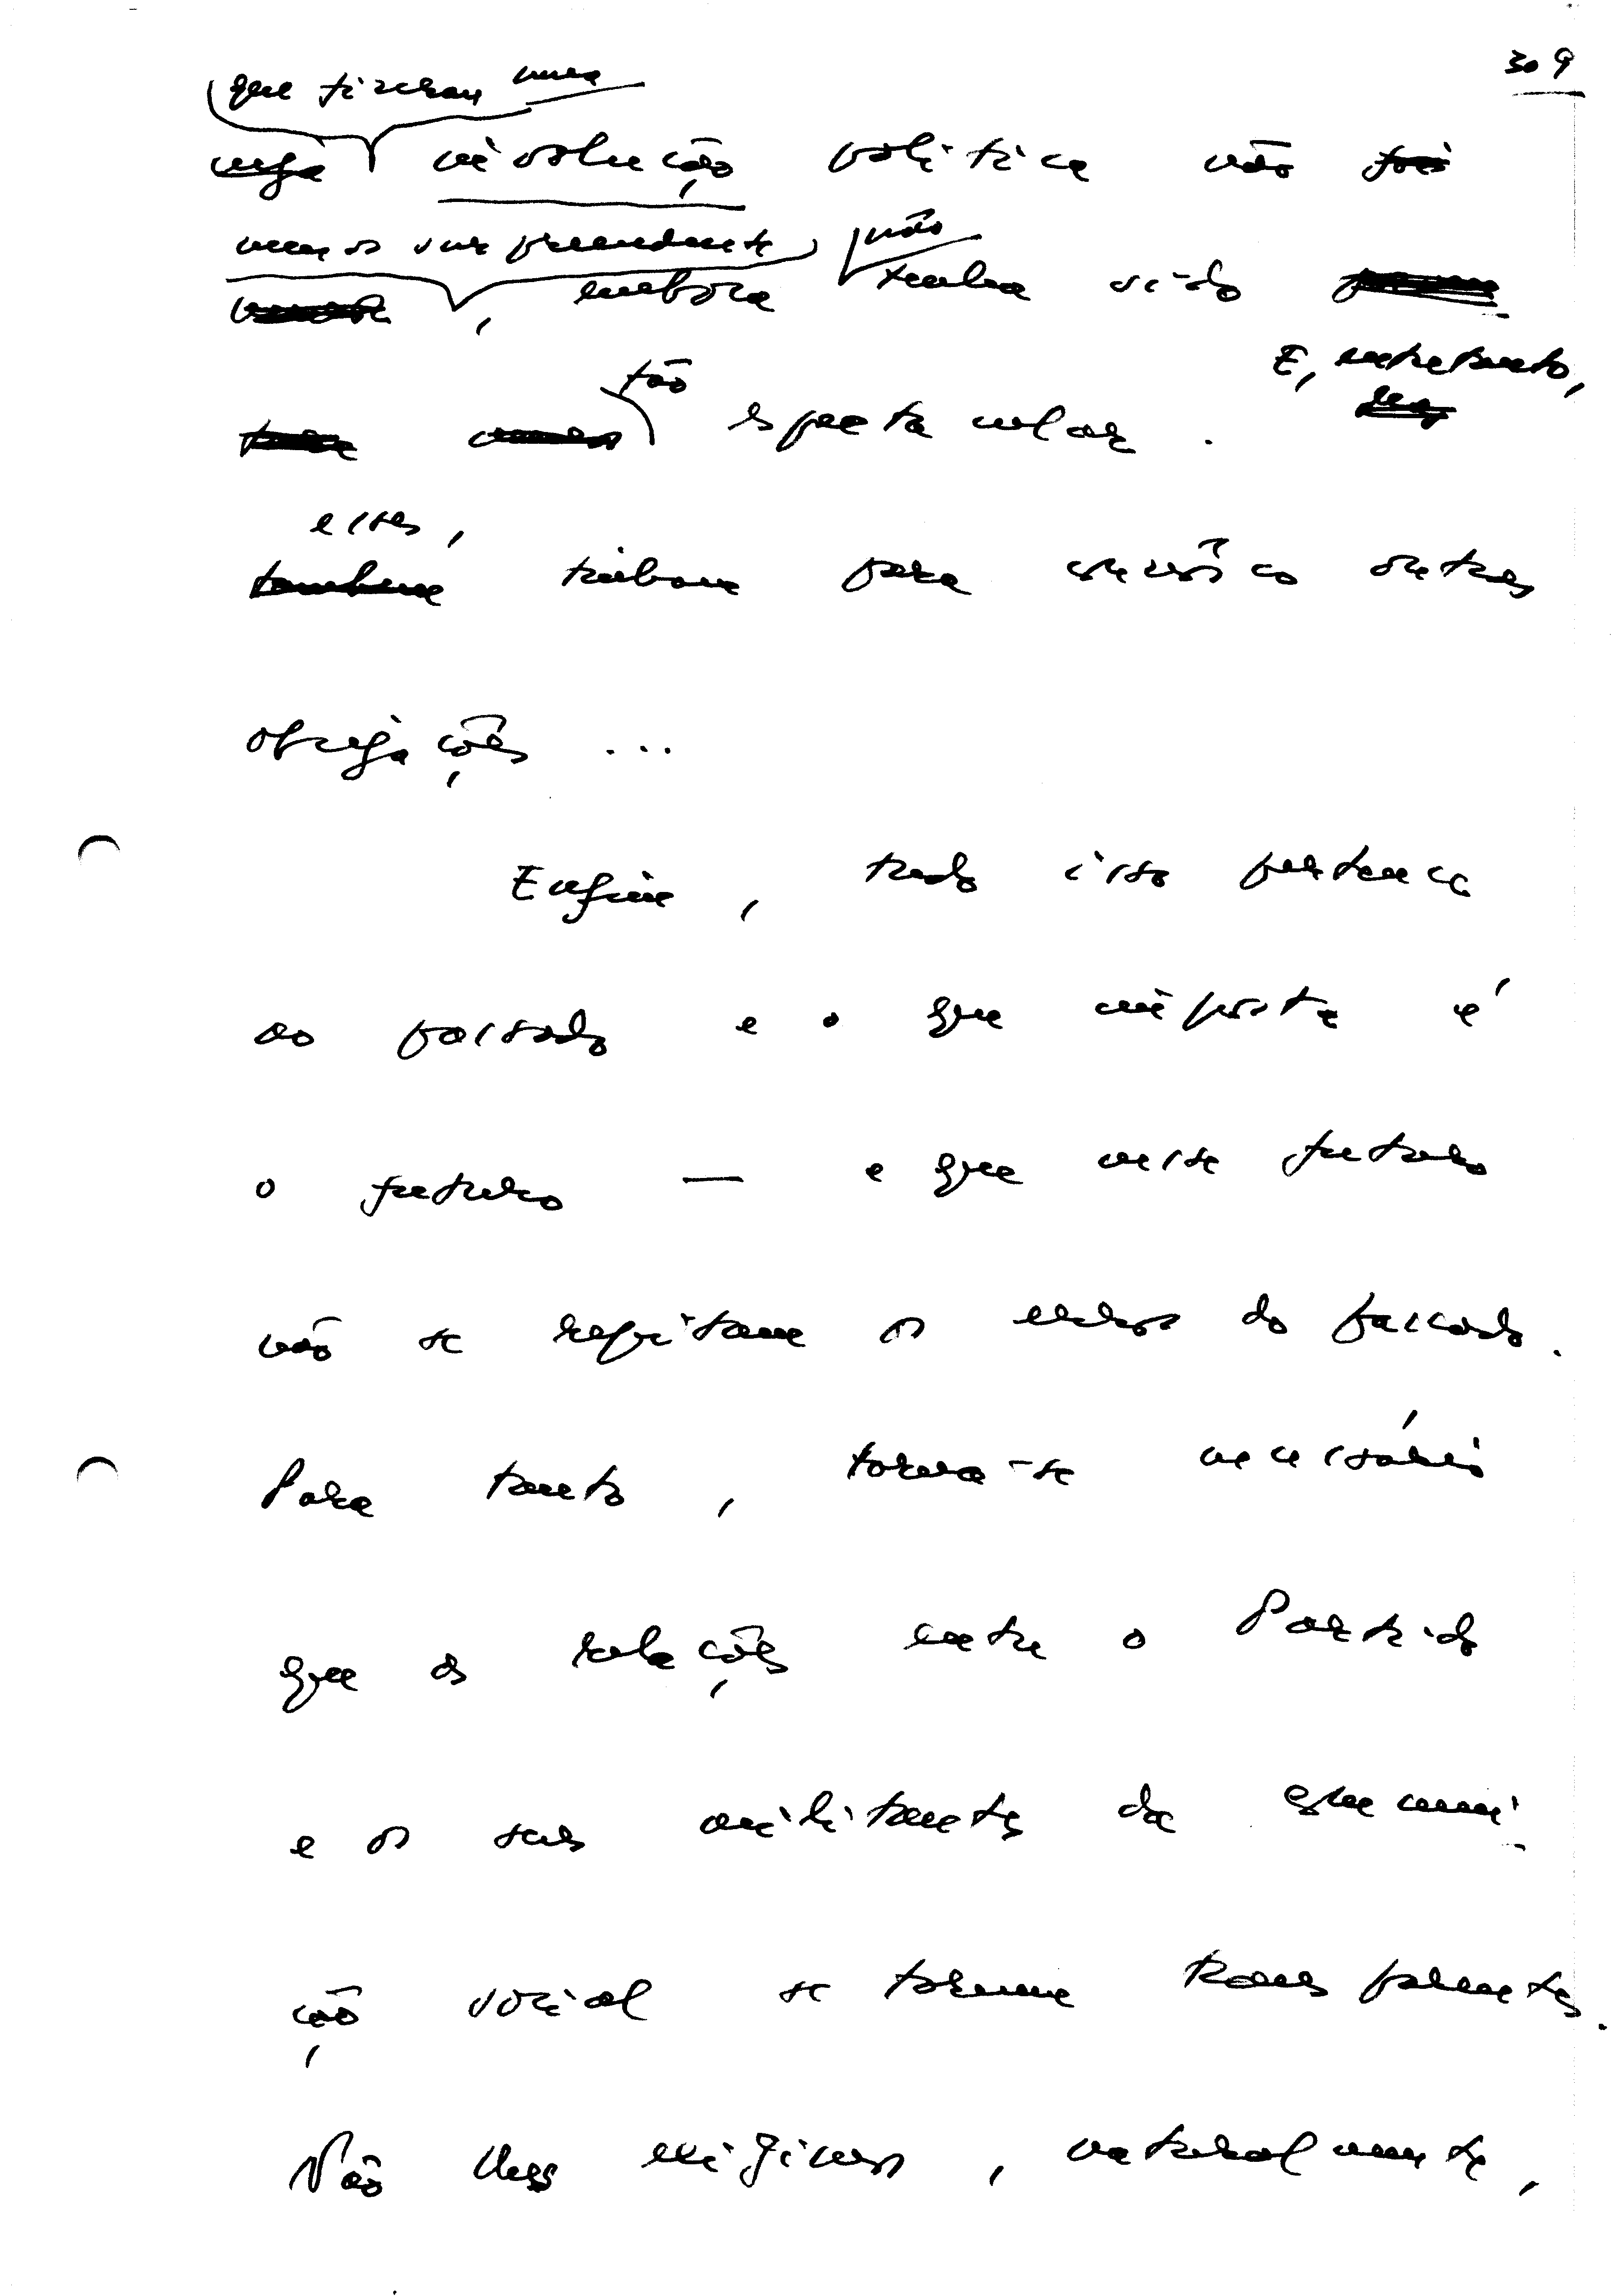 309
que fizeram uma
cuja involução política não foi
menos surpreendente não
, embora tenha sido
E, entretanto,
tão espectacular.
esses,
também tinham para connôsco outras
obrigações ...
Enfim, tudo isso pertence
ao passado e o que importa é
o futuro — e que nesse futuro
não se repitam os erros do passado.
Para tanto, torna-se necessário
que as relações entre o Partido
e os seus militantes de
ção social se tornem transparentes.
Não lhes exigimos, naturalmente,